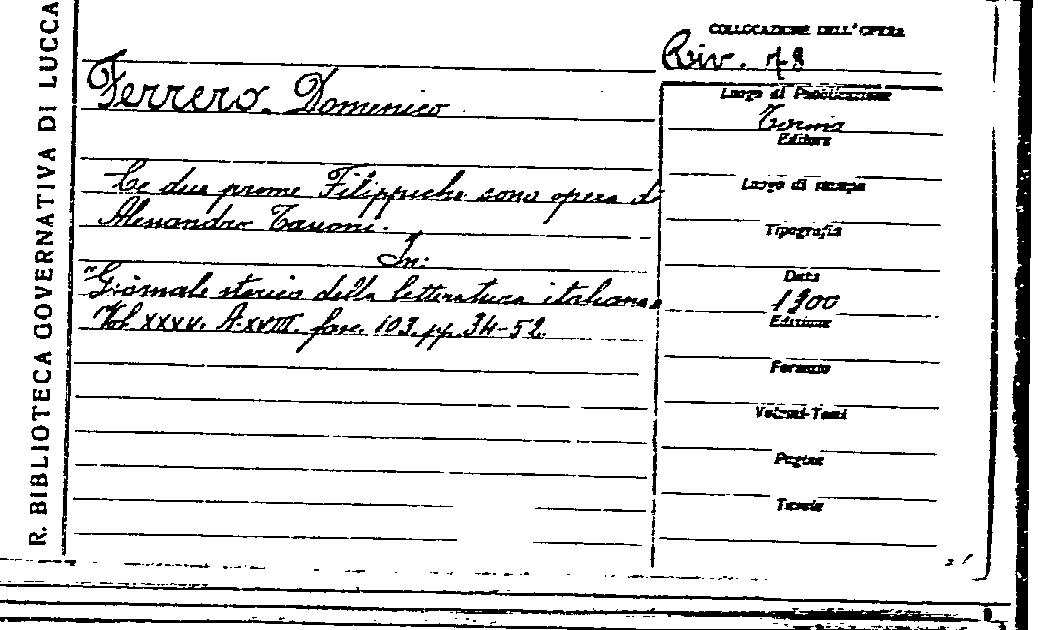 R. BIBLIOTECA GOVERNATIVA DI LUCCA
COLLOCAZIONE DELL'OPERA
Riv. 78
Ferrero Domenico
Luogo di Pubblicazione
Torino
Editore
Le due prime Filippiche sono opera di
Alessandro Tassoni.
Luogo di stampa
Tipografia
In:
"Giornale storico della letteratura italiana"
Vol. XXXV. A. XVIII. fasc. 103. pp. 34-52.
Data
1900
Edizione
Formato
Volumi-Tomi
Pagine
Tavole